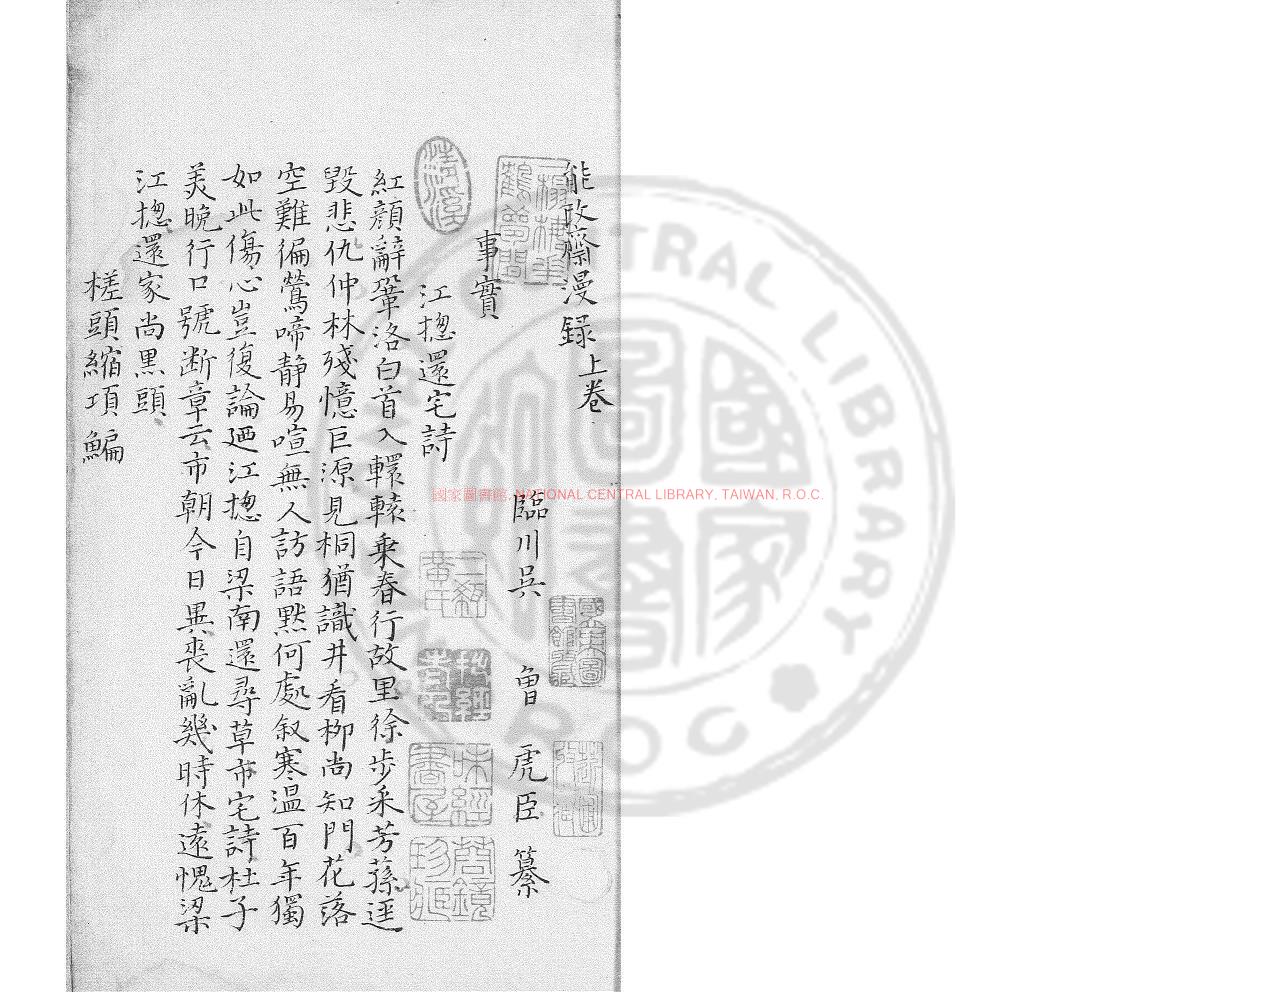 能改齋漫録上卷
臨川吳 曾 虎臣 纂
事實
江揔還宅詩
紅顔辭鞏洛白首入轘轅乗春行故里徐步采芳蓀逕
毀悲仇仲林殘憶巨源見桐猶識井看栁尚知門花落
空難徧鶯啼静易喧無人訪語黙何處叙寒温百年獨
如此傷心豈復論廼江揔自梁南還尋草市宅詩杜子
美晚行口號断章云市朝今日異喪亂幾時休逺愧梁
江揔還家尚黒頭
槎頭縮項鯿
國家圖書館, NATIONAL CENTRAL LIBRARY, TAIWAN, R.O.C.
NATIONAL CENTRAL LIBRARY
R O C
國家圖書館
清溪